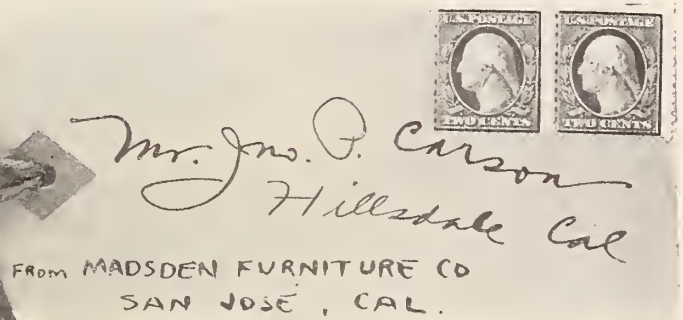 U.S. POSTAGE U.S. POSTAGE
TWO CENTS TWO CENTS
Mr. Jno. P. Carson
Hillsdale Cal
FROM MADSDEN FURNITURE CO
SAN JOSÉ, CAL.